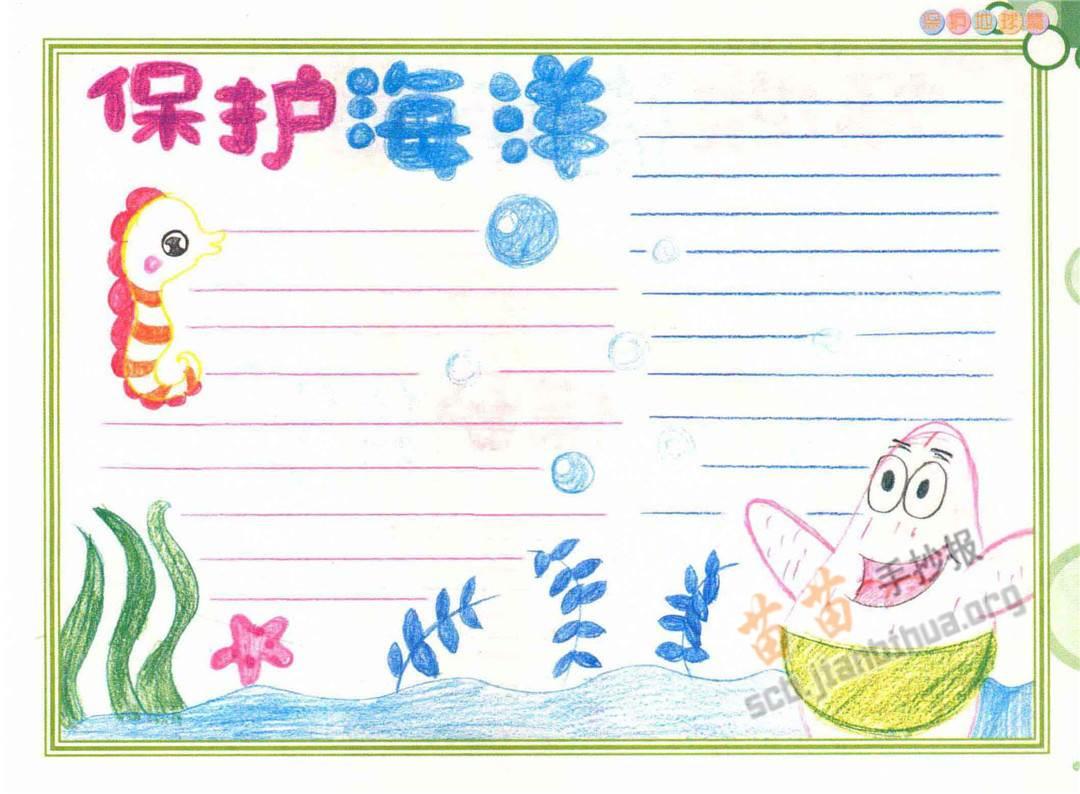 保护地球篇
保护海洋
苗苗手抄报
scb.jianbihua.org